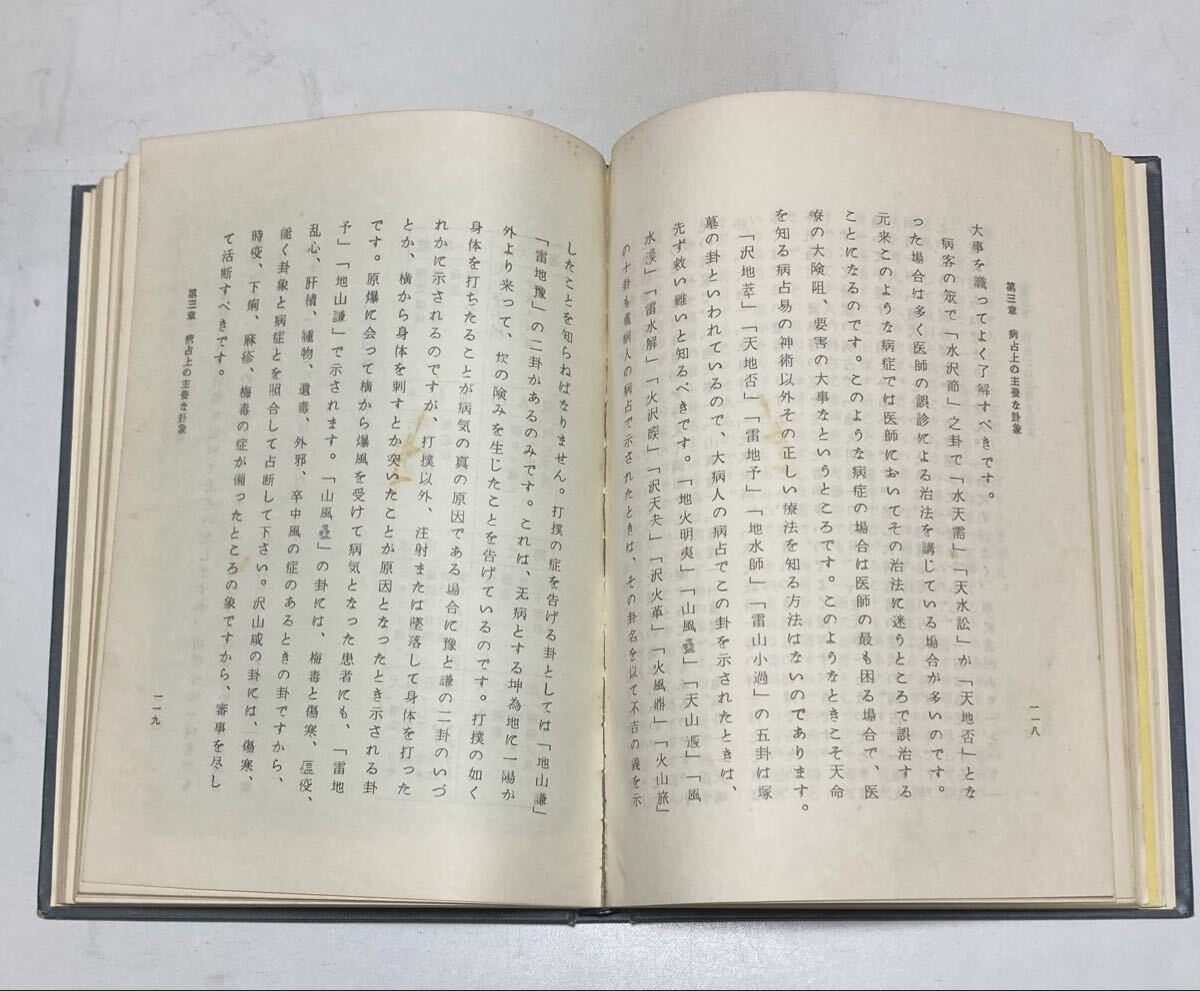 第三章 病占上の主要な卦象
大事を識ってよく了解すべきです。
病客の筮で「水沢節」之卦で「水天需」「天水訟」が「天地否」とな
った場合は多く医師の誤診による治法を講じている場合が多いのです。
元来このような病症では医師においてその治法に迷うところで誤治する
ことになるのです。このような病症の場合は医師の最も困る場合で、医
療の大険阻、要害の大事なというところです。このようなときこそ天命
を知る病占易の神術以外その正しい療法を知る方法はないのであります。
「沢地萃」「天地否」「雷地予」「地水師」「雷山小過」の五卦は塚
墓の卦といわれているので、大病人の病占でこの卦を示されたときは、
先ず救い難いと知るべきです。「地火明夷」「山風蠱」「天山遯」「風
水渙」「雷水解」「火沢睽」「沢天夬」「沢火革」「火風鼎」「火山旅」
の十卦も重病人の病占で示されたときは、その卦名を以て不吉の義を示
一一八
したことを知らねばなりません。打撲の症を告げる卦としては「地山謙」
「雷地豫」の二卦があるのみです。これは、无病とする坤為地に一陽が
外より来って、坎の険みを生じたことを告げているのです。打撲の如く
身体を打ちたることが病気の真の原因である場合に豫と謙の二卦のいづ
れかに示されるのですが、打撲以外、注射または墜落して身体を打った
とか、横から身体を刺すとか突いたことが原因となったとき示される卦
です。原爆に会って横から爆風を受けて病気となった患者にも、「雷地
予」「地山謙」で示されます。「山風蠱」の卦には、梅毒と傷寒、瘟疫、
乱心、肝積、腫物、遺毒、外邪、卒中風の症のあるときの卦ですから、
能く卦象と病症とを照合して占断して下さい。沢山咸の卦には、傷寒、
時疫、下痢、麻疹、梅毒の症が備ったところの象ですから、審事を尽し
て活断すべきです。
第三章 病占上の主要な卦象
一一九